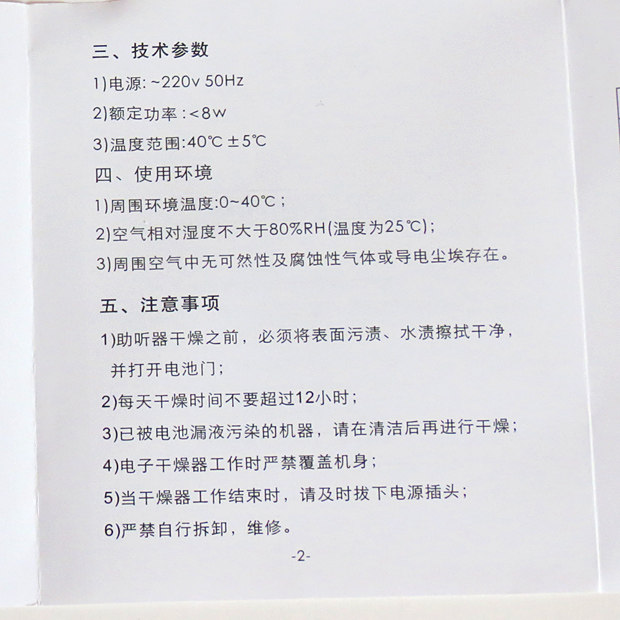 三、技术参数
1)电源: ~220v 50Hz
2)额定功率 : <8w
3)温度范围:40℃ ±5℃
四、使用环境
1)周围环境温度:0~40℃ ;
2)空气相对湿度不大于80%RH(温度为25℃) ;
3)周围空气中无可然性及腐蚀性气体或导电尘埃存在。
五、注意事项
1)助听器干燥之前，必须将表面污渍、水渍擦拭干净，
并打开电池门；
2)每天干燥时间不要超过12小时；
3)已被电池漏液污染的机器，请在清洁后再进行干燥；
4)电子干燥器工作时严禁覆盖机身；
5)当干燥器工作结束时，请及时拔下电源插头；
6)严禁自行拆卸，维修。
-2-